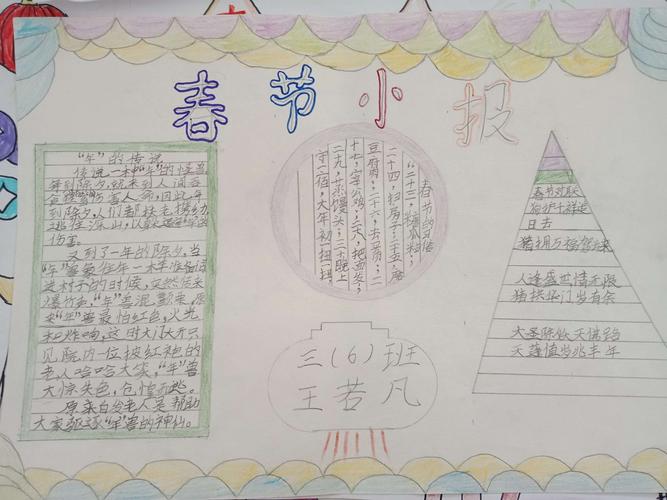 春节小报
“年”的传说
传说一种“年”的怪兽
每到除夕,就来到人间吞
食牲畜伤害人命,因此,每
到除夕,人们都扶老携幼
逃往深山,以躲避“年”的
伤害。
又到了一年的除夕,当
“年”兽象往年一样准备闯
进村子的时候,突然传来
爆竹声,“年”兽混
“年”兽最怕红色,火光
和炸响,这时大门大开只
见院内一位披红袍的
老人哈哈大笑,“年”兽
大惊失色,仓惶而逃。
原来白发老人是帮助
大家驱逐“年”兽的神仙。
春节的习俗
“二十三,糖瓜粘;
二十四,扫房子;二十五,磨
豆腐;二十六,去买肉;二
十七,宰公鸡;二十八,把面发;
二十九,蒸馒头;三十晚上
守一宿,大年初一扭一扭。
三(6)班
王若凡
春节对联
狗护十祥
日去
猪拥万福驾来
人逢盛世情无限
猪拱华门岁有余
大圣除妖天佛路
天蓬值岁兆丰年